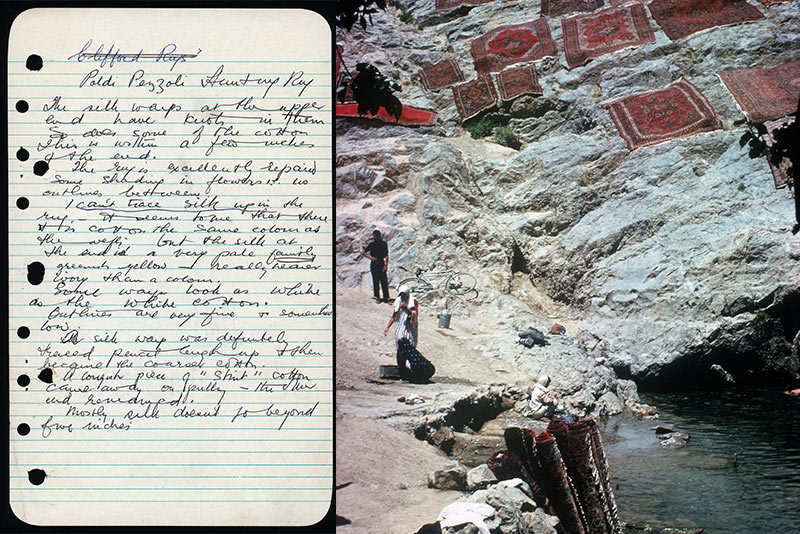 Clifford Rugs?
Poldi Pezzoli Hunting Rug
The silk warps at the upper
end have knots in them
So does some of the cotton
This is within a few inches
of the end.
The rug is excellently repaired
Some shading in flowers: no
outlines between!
I can't trace silk up in the
rug – it seems to me that there
it is cotton the same colour as
the wefts, but the silk at
the end is a very pale faintly
greenish yellow – really nearer
ivory than a colour.
Some warps look as white
as the white cotton.
Outlines are very fine & somewhat
low.
silk warp was definitely
traced pencil length up & then
became the coarser cotton
A longish piece of "Strut" cotton
came away on pulley – the other
end remained.
Mostly silk doesn't go beyond
few inches